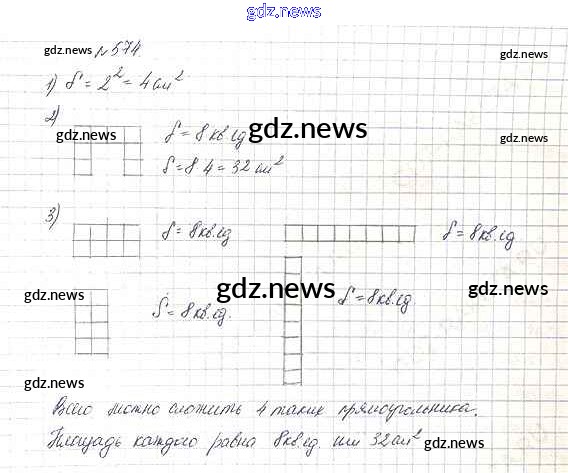 gdz.news
gdz.news №574 gdz.news
1) S = 2² = 4 см²
2)
gdz.news S = 8 кв. ед gdz.news gdz.news
S = 8·4 = 32 см²
3)
S = 8 кв. ед S = 8 кв. ед
gdz.news gdz.news gdz.news
S = 8 кв. ед. S = 8 кв. ед
gdz.news
Всего можно сложить 4 таких прямоугольника.
Площадь каждого равна 8 кв. ед. или 32 см² gdz.news